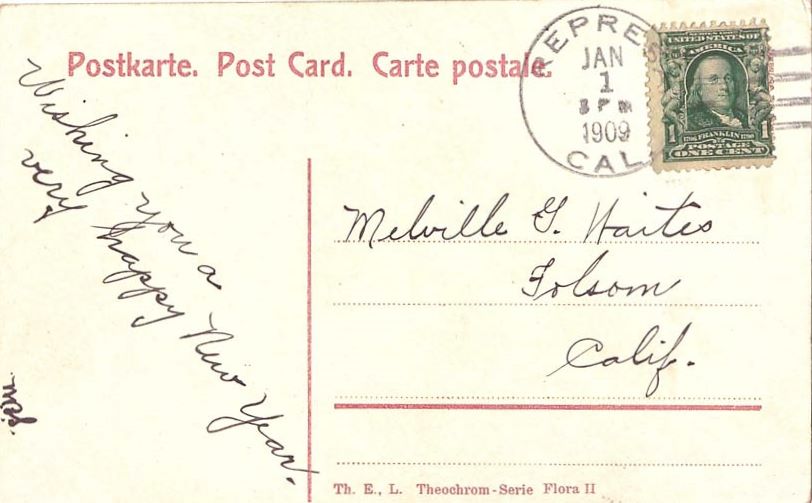 Postkarte. Post Card. Carte postale.
REPRES
JAN
1
3 PM
1909
CAL.
SERIES 1902
UNITED STATES OF
AMERICA
1 FRANKLIN 1
POSTAGE
ONE CENT
Wishing you a
very happy New Year.
Melville G. Waites
Folsom
Calif.
Th. E., L. Theochrom-Serie Flora II